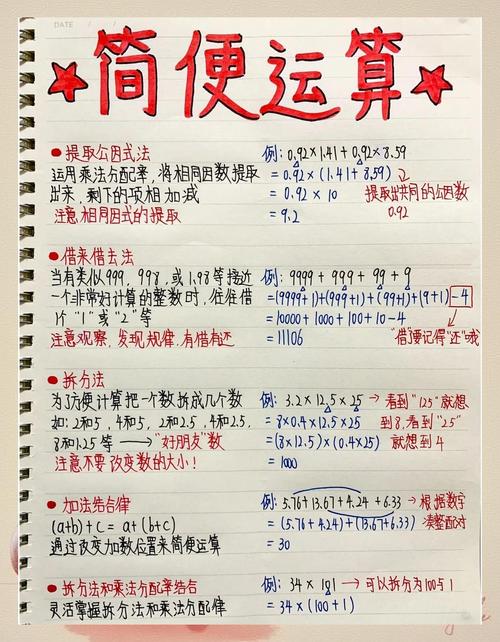 DATE / /
★简便运算★
● 提取公因式法
运用乘法分配率，将相同因数提取
出来，剩下的项相加减
注意相同因式的提取
例: 0.92×1.41+0.92×8.59
=0.92×(1.41+8.59)
=0.92×10
=9.2
提取出共同的公因数
0.92
● 借来借去法
当有类似999，998，或1.98等接近
一个非常好计算的整数时，往往借
1个"1"或"2"等
注意观察，发现规律，有借有还
例: 9999+999+99+9
=(9999+1)+(999+1)+(99+1)+(9+1)-4
=10000+1000+100+10-4
=11106
"借"要记得"还"哦
● 拆分法
为了方便计算把一个数拆成几个数
如: 2和5，4和5，2和2.5，4和2.5，
8和1.25等 → "好朋友"数
注意不要改变数的大小！
例: 3.2×12.5×25 → 看到"125"就想
=8×0.4×12.5×25 到8,看到"25"
=(8×12.5)×(0.4×25) 就想到4
=1000
● 加法结合律
(a+b)+c=a+(b+c)
通过改变加数位置来简便运算
例: 5.76+13.67+4.24+6.33 → 根据数字
=(5.76+4.24)+(13.67+6.33) 凑整配对
=30
● 拆分法和乘法分配率结合
灵活掌握拆分法和乘法分配律
例: 34×101 → 可以拆分为100与1
=34×(100+1)